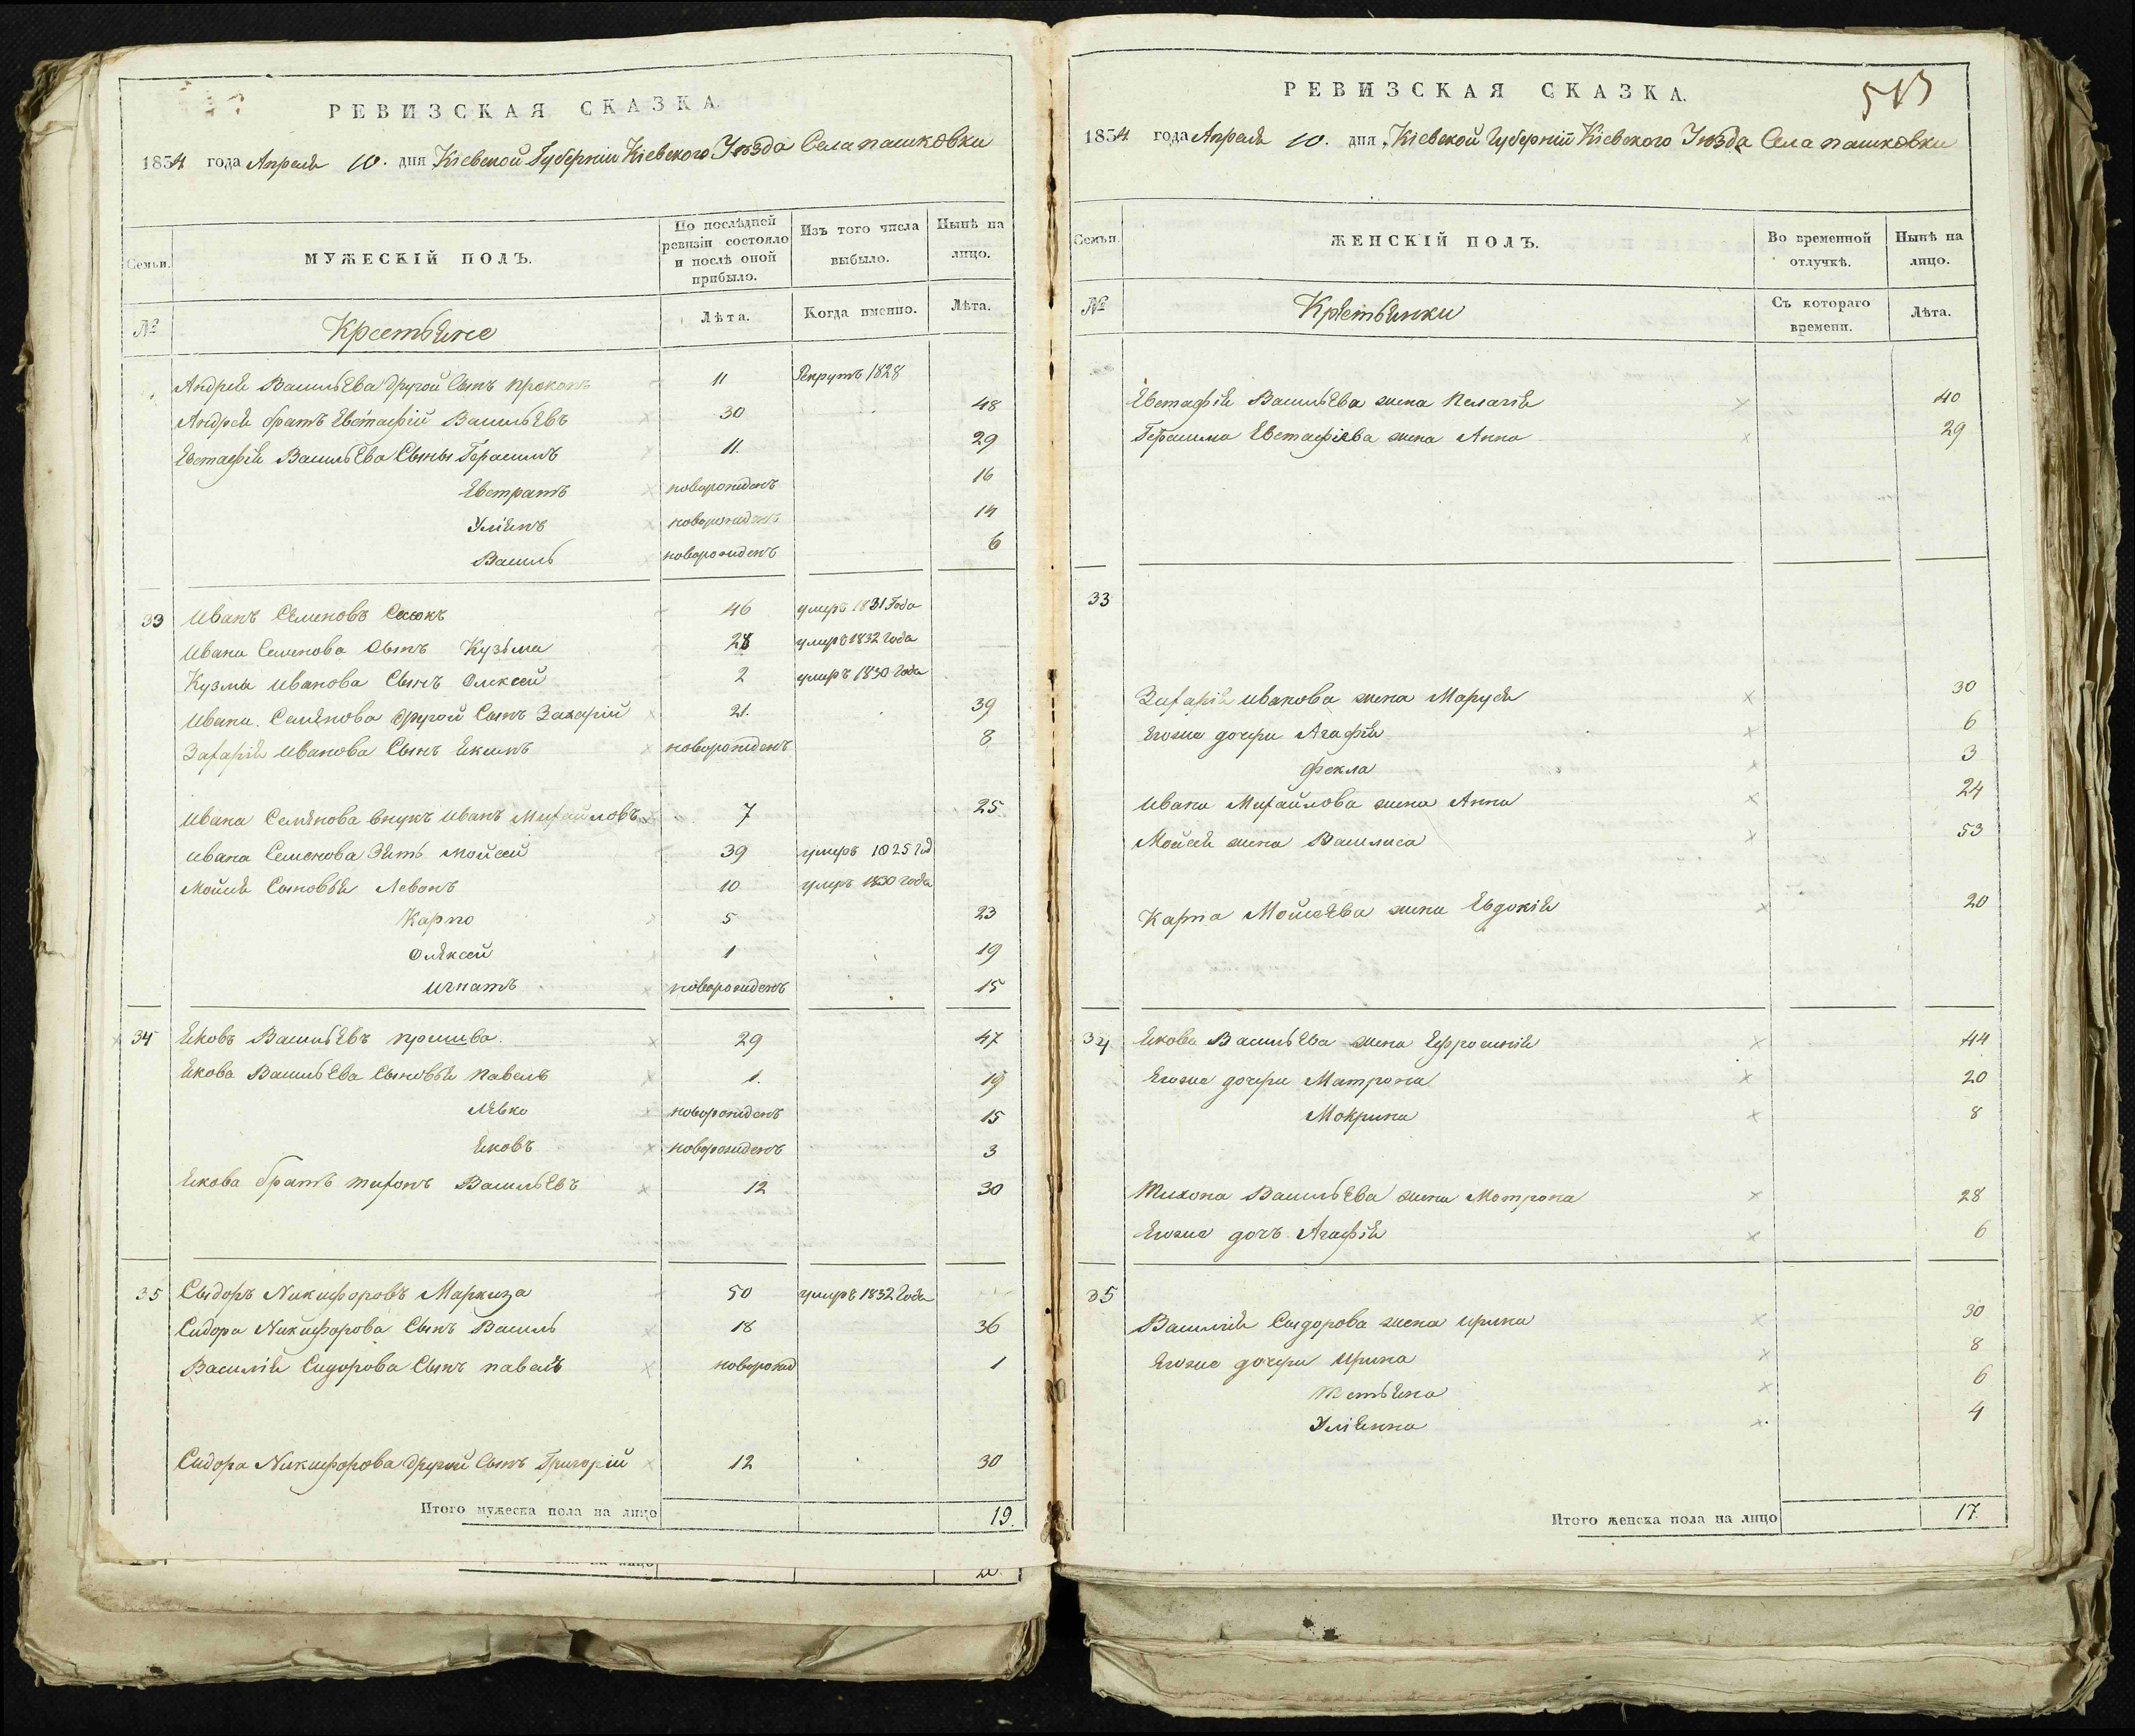 РЕВИЗСКАЯ СКАЗКА
1834 года Апреля 10. дня Кіевской Губерніи Кіевского Уѣзда Села пашковки
Семьи. МУЖЕСКІЙ ПОЛЪ. По послѣдней ревизіи состояло и послѣ оной прибыло. Изъ того числа выбыло. Нынѣ на лицо.
№ Крестьяне Лѣта. Когда именно. Лѣта.
Андрея Васильева другой Сынъ прокопъ 11 Рекрутъ 1828
Андрея братъ Евстафій Васильевъ 30 48
Евстафія Васильева Сыны Герасимъ 11. 29
Евстратъ новорожденъ 16
Уліянъ новорожденъ 14
Василь новорожденъ 6
33 Иванъ Семеновъ 46 умеръ 1831 Года
Ивана Семенова Сынъ Кузьма 28 умеръ 1832 Года
Кузмы Иванова Сынъ Олексей 2 умеръ 1830 Года
Ивана Семенова другой Сынъ Захарій 21. 39
Захарія Иванова Сынъ Якимъ новорожденъ 8
Ивана Семенова внукъ Иванъ Михайловъ 7 25
Ивана Семенова Зять Мойсей 39 умеръ 1825 год
Мойсея Сыновья Левонъ 10 умеръ 1830 года
Карпо 5 23
Олексей 1 19
Игнатъ новорожденъ 15
34 Яковъ Васильевъ 29 47
Якова Васильева Сыновья Павелъ 1. 19
Левко новорожденъ 15
Яковъ новорожденъ 3
Якова братъ Тихонъ Васильевъ 12 30
35 Сыдоръ Никифоровъ Маркиза 50 умеръ 1832 Года
Сидора Никифорова Сынъ Василь 18 36
Василія Сидорова Сынъ павелъ новорожд 1
Сидора Никифорова другой Сынъ Григорій 12 30
Итого мужеска пола на лицо 19.
513
РЕВИЗСКАЯ СКАЗКА.
1834 года Апреля 10. дня Кіевской Губерніи Кіевского Уѣзда Села пашковки
Семьи. ЖЕНСКІЙ ПОЛЪ. Во временной отлучкѣ. Нынѣ на лицо.
№ Крестьянки Съ котораго времени. Лѣта.
Евстафія Васильева жена Пелагія 40
Герасима Евстафіева жена Анна 29
33
Захарія Иванова жена Маруся 30
Егожъ дочери Агафія 6
Фекла 3
Ивана Михайлова жена Анна 24
Мойсея жена Василиса 53
Карпа Мойсеева жена Евдокія 20
34 Якова Васильева жена Ефросинія 44
Егоже дочери Матрона 20
Мокрина 8
Тихона Васильева жена Мотрона 28
Егоже дочъ Агафія 6
35
Василія Сыдорова жена Ирина 30
Егоже дочери Ирина 8
Тетьяна 6
Уліянна 4
Итого женска пола на лицо 17.